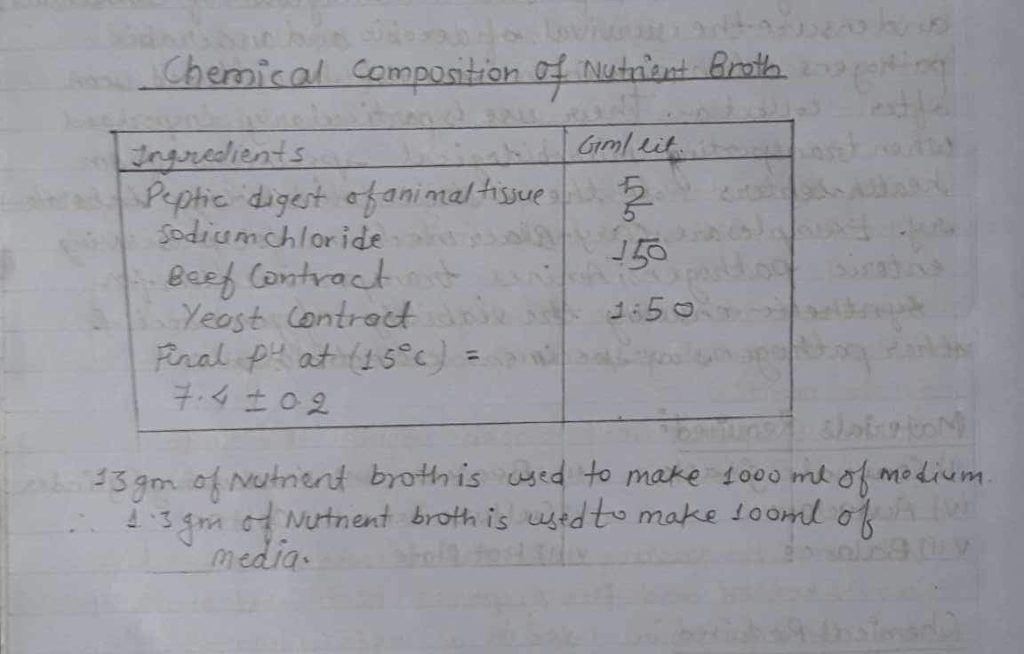 Chemical Composition of Nutrient Broth
Ingredients Gm/lit.
Peptic digest of animal tissue 5
Sodium chloride 5
Beef Contract 150
Yeast Contract 1.50
Final pH at (15°C) =
7.4 ± 0.2
13 gm of Nutrient broth is used to make 1000 ml of medium.
∴ 1.3 gm of Nutrient broth is used to make 100ml of
media.